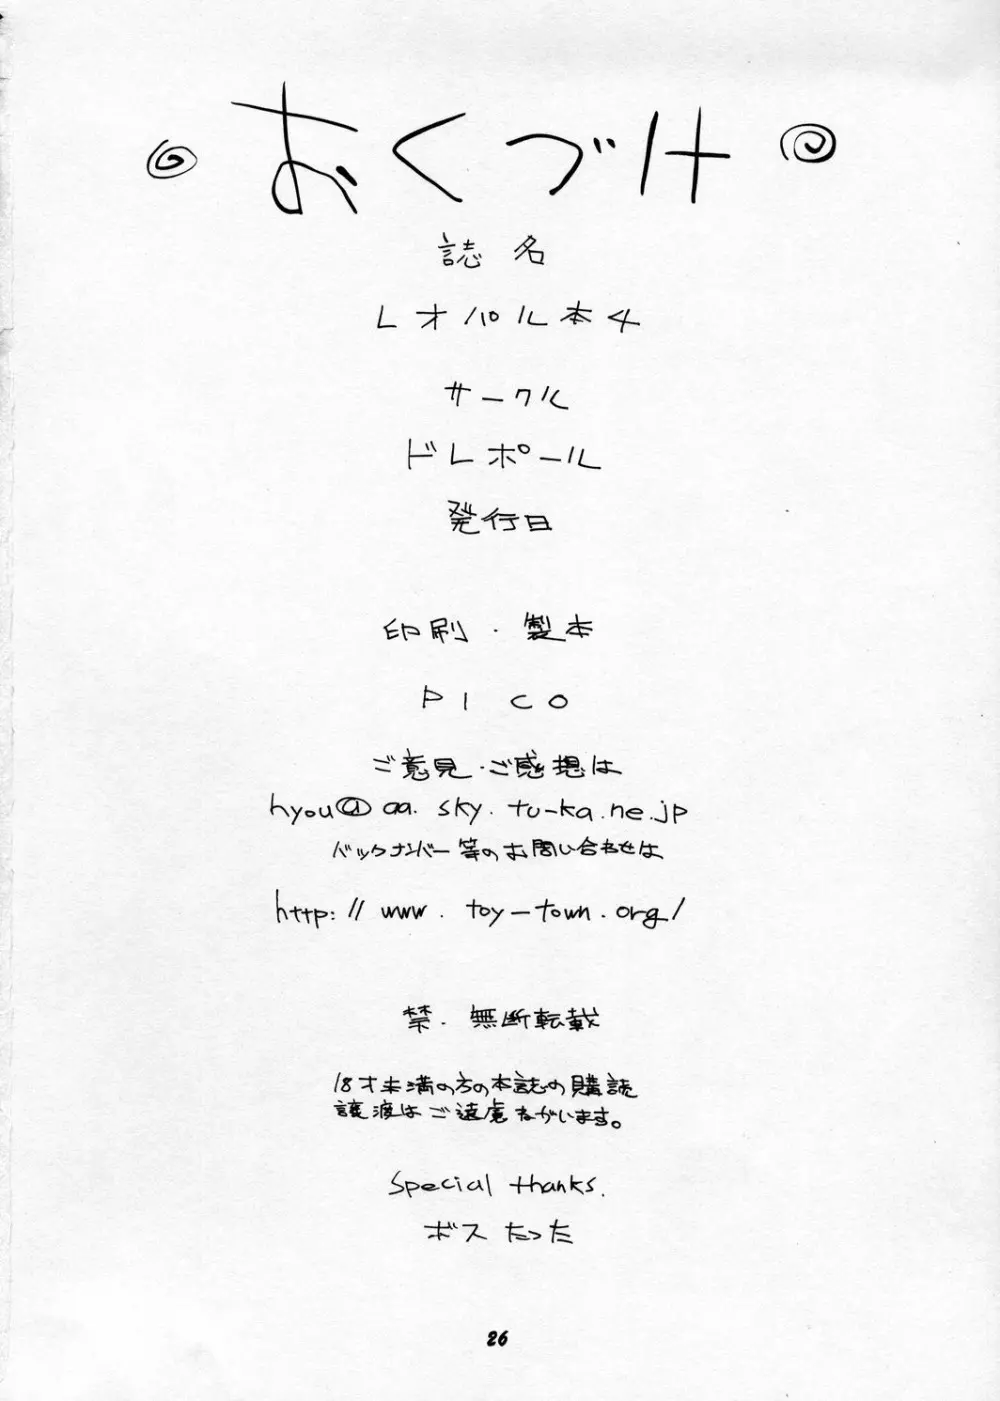 おくづけ
誌名
レオパル本4
サークル
ドレポール
発行日
印刷・製本
PICO
ご意見・ご感想は
hyou@aa.sky.tu-ka.ne.jp
バックナンバー等のお問い合わせは
http://www.toy-town.org/
禁・無断転載
18才未満の方の本誌の購読
譲渡はご遠慮ねがいます。
Special thanks.
ボスたった
26